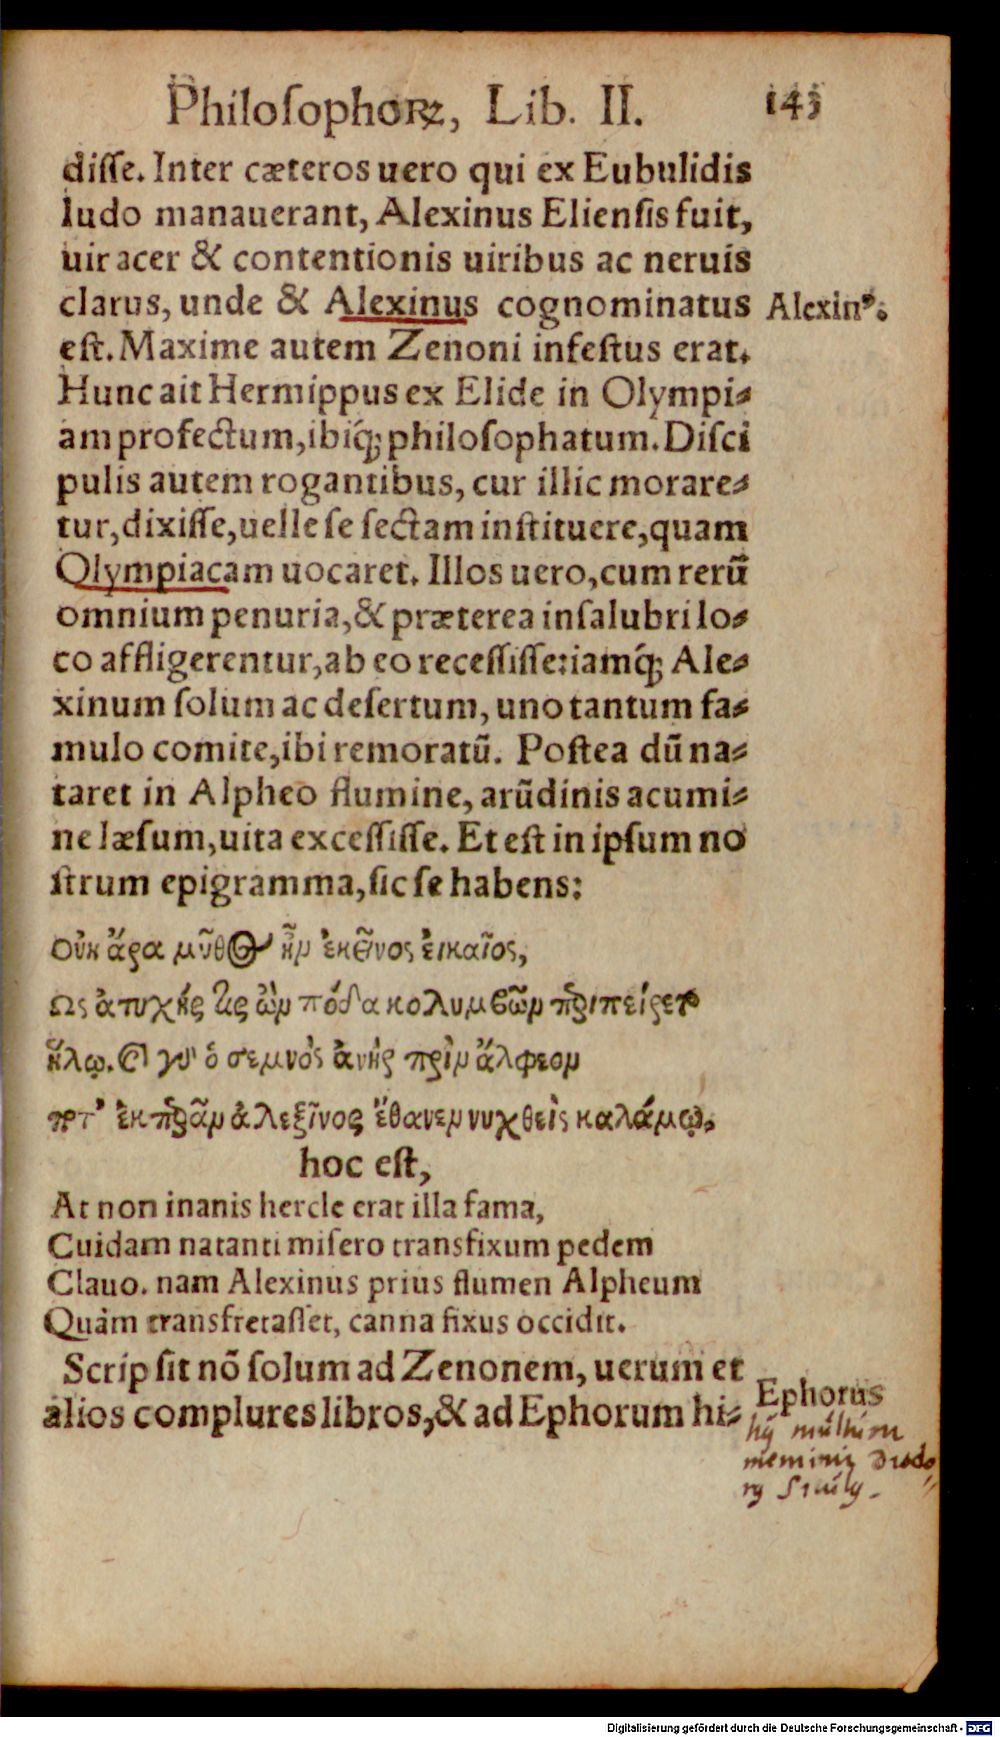 Philosophoꝝ, Lib. II. 143
disse. Inter cæteros uero qui ex Eubulidis
ludo manauerant, Alexinus Eliensis fuit,
uir acer & contentionis uiribus ac neruis
clarus, unde & Alexinus cognominatus
Alexinꝰ.
est. Maxime autem Zenoni infestus erat.
Hunc ait Hermippus ex Elide in Olympi-
am profectum, ibiq́; philosophatum. Disci
pulis autem rogantibus, cur illic morare-
tur, dixisse, uelle se sectam instituere, quam
Olympiacam uocaret. Illos uero, cum rerũ
omnium penuria, & præterea insalubri lo-
co affligerentur, ab eo recessisse: iamq́; Ale-
xinum solum ac desertum, uno tantum fa-
mulo comite, ibi remoratũ. Postea dũ na-
taret in Alpheo flumine, arũdinis acumi-
ne læsum, uita excessisse. Et est in ipsum no
strum epigramma, sic se habens:
Οὐκ ἄρα μῦθος ἦν ἐκεῖνος εἰκαῖος,
Ως ἀτυχής τις ὢν πόδα κολυμβῶν περιπείρετο
ἥλῳ. Καὶ γὰρ ὁ σεμνὸς ἀνὴρ πρὶν ἄλφεον
ποτ' ἐκπερᾶν ἀλεξῖνος ἔθανεν νυχθεὶς καλάμῳ.
hoc est,
At non inanis hercle erat illa fama,
Cuidam natanti misero transfixum pedem
Clauo. nam Alexinus prius flumen Alpheum
Quàm transfretasset, canna fixus occidit.
Scripsit nõ solum ad Zenonem, uerum et
alios complures libros, & ad Ephorum hi-
Ephorus
hij multum
meminit Diodo-
rg Siculg.
Digitalisierung gefördert durch die Deutsche Forschungsgemeinschaft - DFG